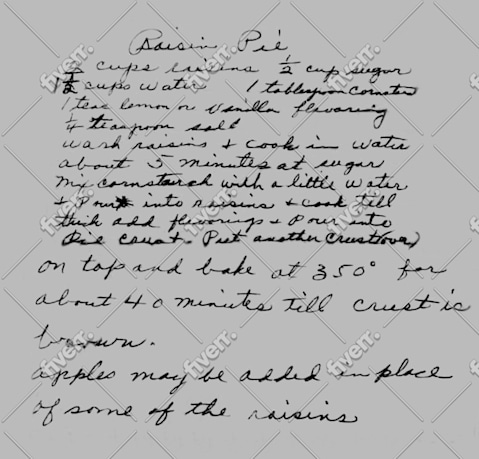 Raisin Pie
cups raisins 1/2 cup sugar
cups water 1 tablespoon cornstar
1 teas lemon or vanilla flavoring
1/4 teaspoon salt
wash raisins + cook in water
about 5 minutes at sugar
mix cornstarch with a little water
+ Pour into raisins + cook till
thick add flavorings + Pour into
Pie crust. Put another crust over
on top and bake at 350° for
about 40 minutes till crust is
brown.
apples may be added in place
of some of the raisins